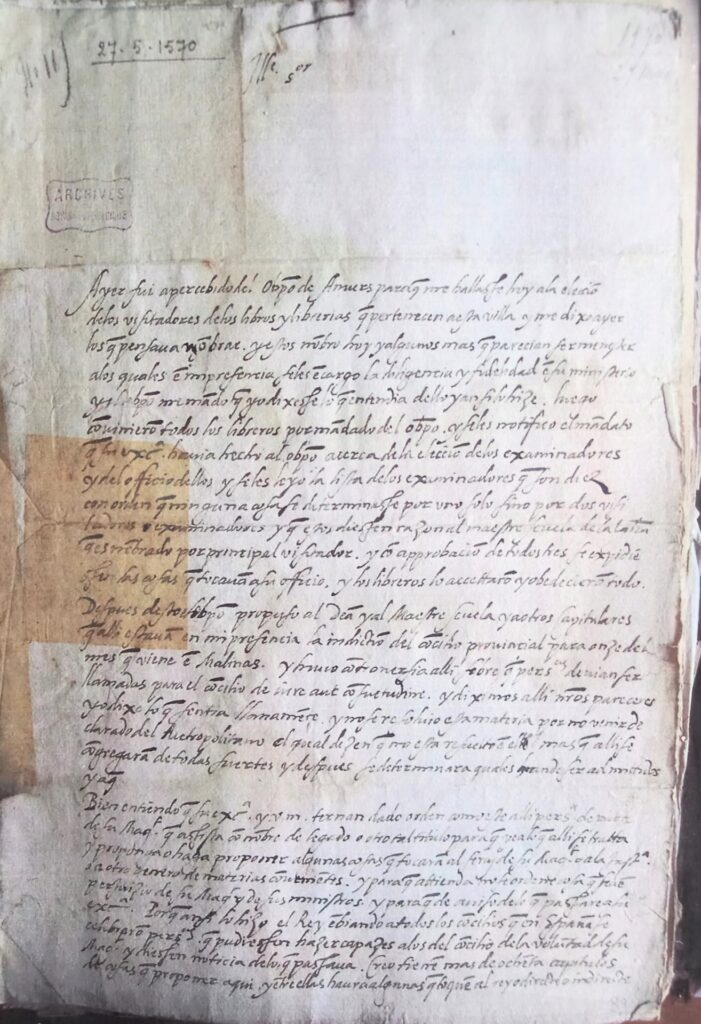 27·5·1570
Ille. sor
ARCHIVES
Ayer fui apercebido del Obpõ de Anvers para q̃ me hallasse hoy ala electiõ
delos visitadores delos libros y librerias q̃ pertenecen a esta villa y me dixo ayer
los q̃ pensava nõbrar. y estos nõbro hoy y algunos mas q̃ parecian ser menester
alos quales ẽ mi presencia seles ẽcargo la diligencia y fidelidad ẽ su ministerio
y el obpõ me mando q̃ yo dixesse lo q̃ entendia dello y ansi lo hize. luego
cõvinierõ todos los libreros por mandado del obpõ. y seles notifico el mandato
q̃ su exc.ª havia hecho al obpõ acerca dela electiõ delos examinadores
y del officio dellos y seles leyo la lista delos examinadores q̃ son diez
con orden q̃ ninguna cosa se determinasse por uno solo sino por dos visi
tadores o examinadores y q̃ estos diessen razon al maestre scuela de la
q̃ es nõbrado por principal visitador. y cõ approbaciõ de todos tres se expidie
ssen las cosas q̃ tocavan a su officio. y los libreros lo accettarõ y obedecierõ todo.
Despues desto el obpõ propuso al Deã y al Maestre scuela y a otros capitulares
q̃ alli estavã en mi presencia la indictiõ del cõcilio provincial para onze del
mes q̃ viene ẽ Malinas. y huvo cõtroversia alli sobre q̃ pers.as devian ser
llamadas para el cõcilio de iure aut cõsuetudine. y diximos alli nr̃os pareceres
y yo dixe lo q̃ sentia llanamẽte. y no se resolvio esta materia por no venir de
clarado del Metropolitano el qual dizen q̃ no esta resuelto ẽ mas q̃ alli se
cõgregarã de todas suertes y despues se determinara quales han de ser admitidos
y a q̃
Bien entiendo q̃ su exc.ª y v.m. ternan dado orden como este alli pers.ª de parte
de su Mag.d q̃ assista cõ nõbre de legado o otro tal titulo para q̃ vea lo q̃ alli se tratta
y proponga o haga proponer algunas cosas q̃ tocarã al servicio de su Mag.d o ala
o a otro genero de materias cõvenientes. y para q̃ attienda no se ordene cosa q̃ sea en
perjuizio de su Mag.d y de sus ministros. y para q̃ de aviso delo q̃ passare a su
exc.ª Porq̃ ansi lo hizo el Rey ẽbiando a todos los cõcilios q̃ en España se
celebrarõ pers.as q̃ pudiessen hazer capazes alos del cõcilio dela voluntad de su
Mag.d y diessen noticia delo q̃ passava. Creo tienẽ mas de ochẽta capitulos
de cosas q̃ proponer aqui. y entre ellas havra algunas q̃ toquẽ al rey o directe o indirecte